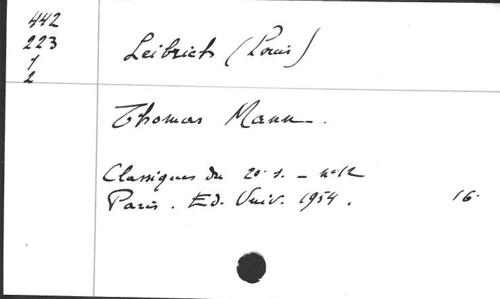 442
223
1
2
Leibrich (Louis)
Thomas Mann.
Classiques du 20e s. - n° 12
Paris. Ed. Univ. 1954. 16.